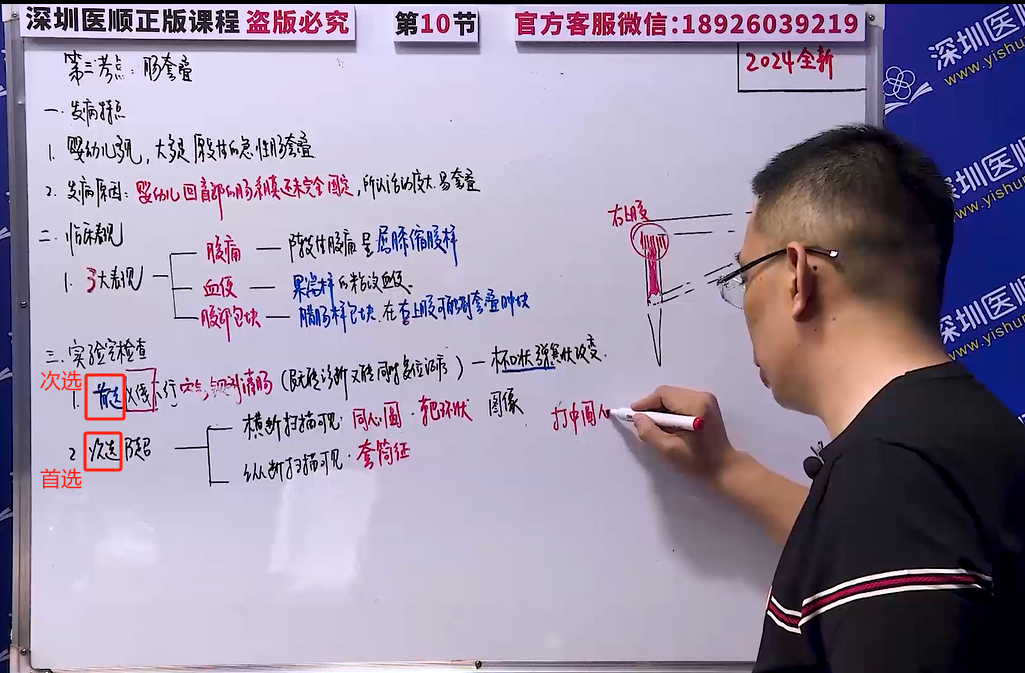 深圳医顺正版课程 盗版必究
第10节
官方客服微信:18926039219
2024全新
深圳医顺
www.yishu
第三考点：肠套叠
一.发病特点
1. 婴幼儿多见，大多是原发性的急性肠套叠
2. 发病原因：婴幼儿回盲部的肠系膜还未完全固定，所以活动度大.易套叠
二.临床表现
1. 3大表现
腹痛 — 阵发性腹痛呈屈膝缩腹样
血便 — 果酱样的粘液血便.
腹部包块 — 腊肠样包块.在右上腹可触到套叠肿块
右上腹
三.实验室检查
次选
1. 首选 X线 空气 钡剂灌肠（既能诊断又能同时复位治疗）— 杯口状 弹簧状改变.
2 次选 B超
首选
横断扫描可见：同心圆·靶环状 图像
纵断扫描可见·套筒征
打中圆心
深圳医顺
www.yishun
深圳医顺
www.yishun